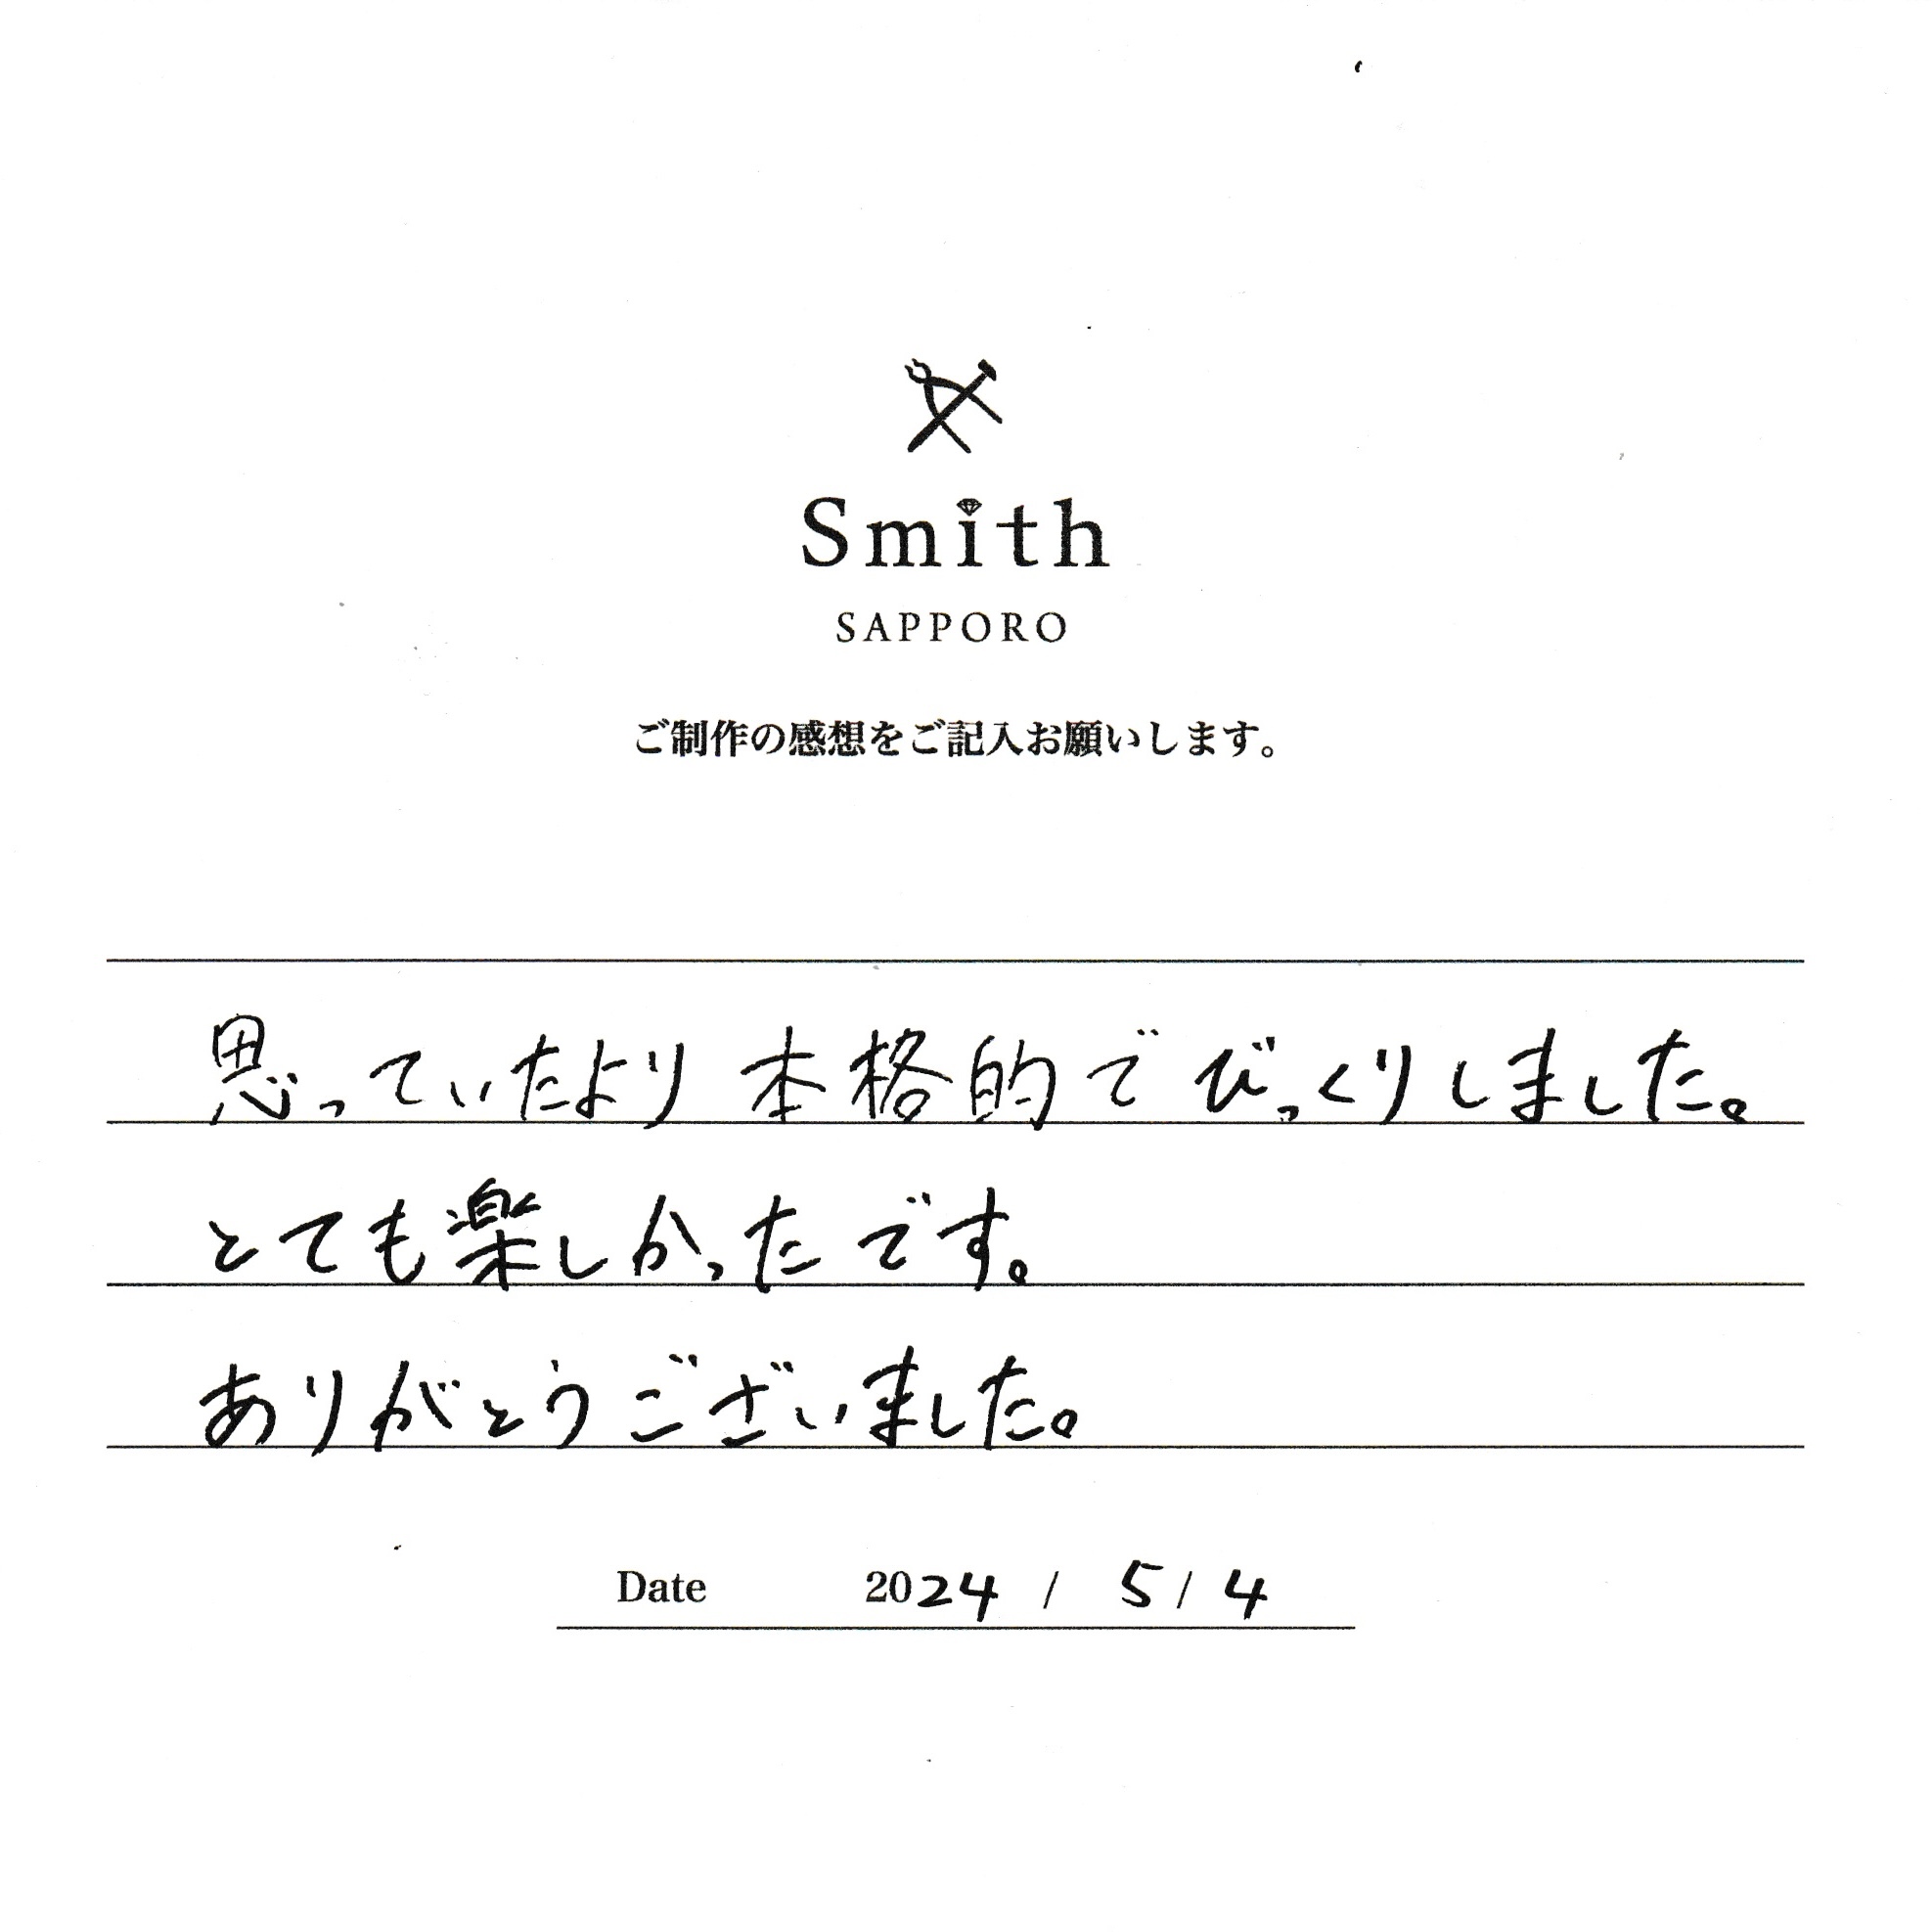 Smith
SAPPORO
ご制作の感想をご記入お願いします。
思っていたより本格的でびっくりしました。
とても楽しかったです。
ありがとうございました。
Date 2024 / 5 / 4